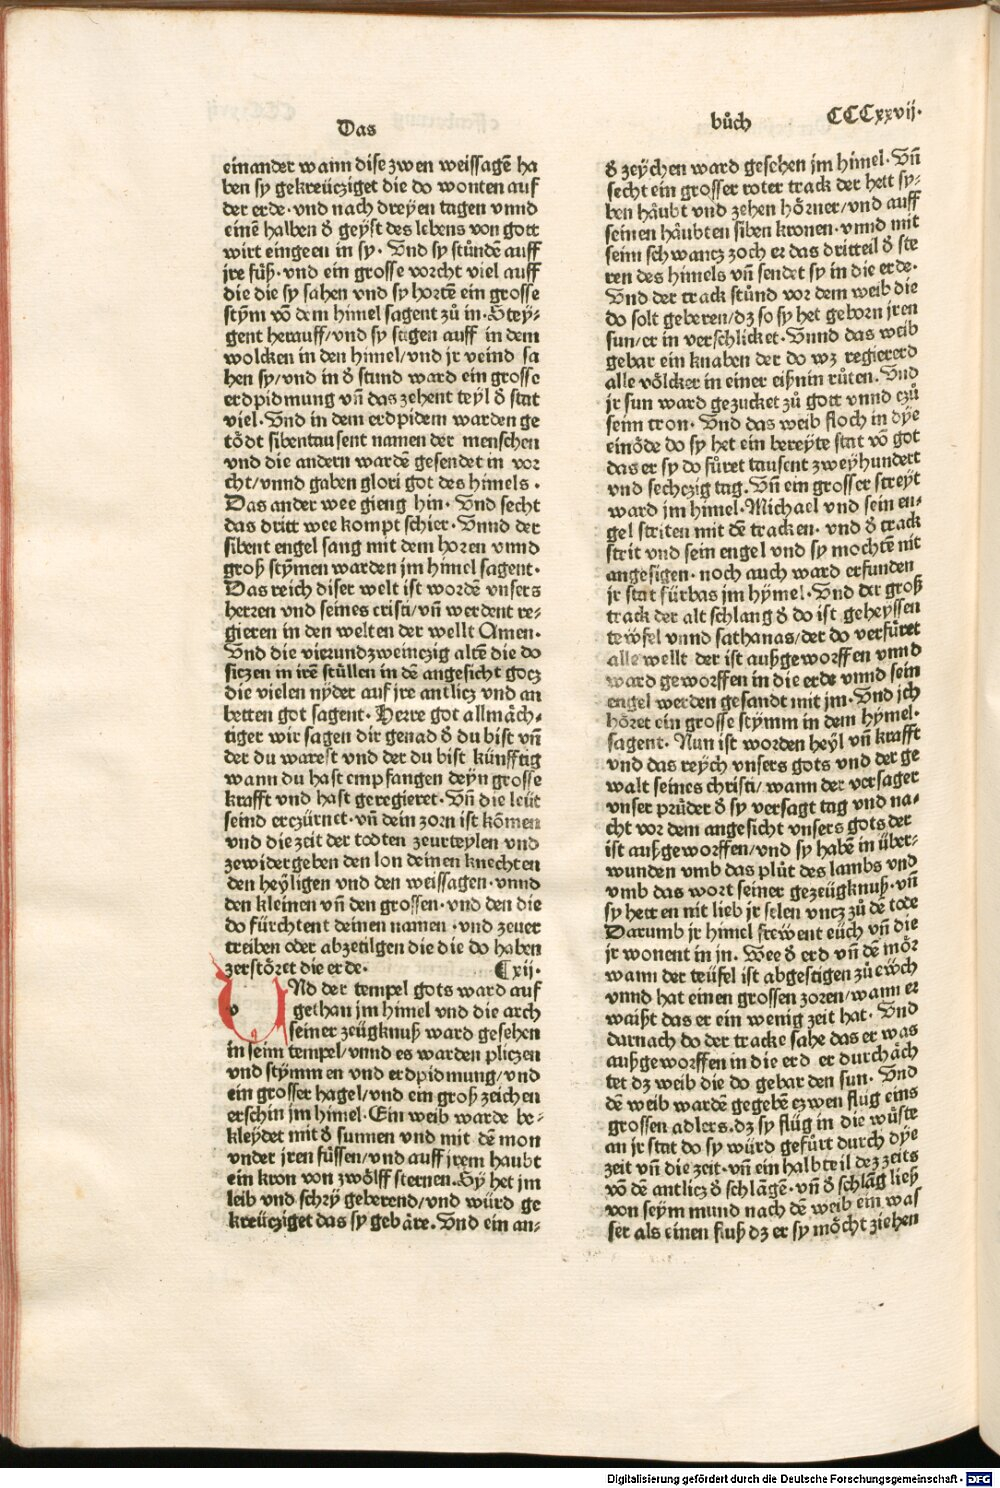 Das
bůch
CCCxxvij.
einander wann dise zwen weissagē ha
ben sy gekreücziget die do wonten auf
der erde· vnd nach dreyen tagen vnnd
einē halben ð geÿst des lebens von gott
wirt eingeen in sy· Vnd sy stůndē auff
jre füß· vnd ein grosse vorcht viel auff
die die sy sahen vnd sy hortē ein grosse
stÿm vō dem himel sagent zů in· Steÿ⸗
gent herauff/ vnd sy stigen auff in dem
wolcken in den himel/ vnd jr veind sa
hen sy/ vnd in ð stund ward ein grosse
erdpidmung vñ das zehent teyl ð stat
viel· Vnd in dem erdpidem warden ge
tödt sibentausent namen der menschen
vnd die andern wardē gesendet in vor
cht/ vnnd gaben glori got des himels ·
Das ander wee gieng hin· Vnd secht
das dritt wee kompt schier· Vnnd der
sibent engel sang mit dem horen vnnd
groß stÿmen warden jm himel sagent·
Das reich diser welt ist wordē vnsers
herren vnd seines cristi/ vñ werdent re⸗
gieren in den welten der wellt Amen·
Vnd die vierundzweinczig altē die do
siczen in irē stüllen in dē angesicht gocz
die vielen nÿder auf jre antlicz vnd an
betten got sagent· Herre got allmäch⸗
tiger wir sagen dir genad ð du bist vñ
der du warest vnd der du bist künfftig
wann du hast empfangen deÿn grosse
krafft vnd hast geregieret· Vñ die leüt
seind erczürnet· vñ dein zorn ist kōmen
vnd die zeit der todten zeurteylen vnd
zewidergeben den lon deinen knechten
den heÿligen vnd den weissagen· vnnd
den kleinen vñ den grossen· vnd den die
do fürchtent deinen namen · vnd zeuer
treiben oder abzetilgen die die do haben
zerstöret die erde· ¶xij·
VNd der tempel gots ward auf
gethan jm himel vnd die arch
seiner zeügknuß ward gesehen
in seim tempel/ vnnd es warden pliczen
vnd stÿmmen vnd erdpidmung/ vnd
ein grosser hagel/ vnd ein groß zeichen
erschin jm himel· Ein weib warde be⸗
kleÿdet mit ð sunnen vnd mit dē mon
vnder jren füssen/ vnd auff jrem haubt
ein kron von zwölff sternen· Sÿ het jm
leib vnd schrÿ geberend/ vnd würd ge
kreücziget das sy gebäre. Vnd ein an⸗
ð zeÿchen ward gesehen jm himel· Vñ
secht ein grosser roter track der hett sy⸗
ben häubt vnd zehen hörner/ vnd auff
seinen häubten siben kronen· vnnd mit
seim schwancz zoch er das dritteil ð ste
ren des himels vñ sendet sy in die erde·
Vnd der track stůnd vor dem weib die
do solt geberen/ dz so sy het geborn jren
sun/ er in verschlicket· Vnnd das weib
gebar ein knaben der do wz regierend
alle völcker in einer eißnin růten. Vnd
jr sun ward gezucket zů gott vnnd czů
seim tron· Vnd das weib floch in dÿe
einöde do sy het ein bereÿte stat vō got
das er sy do fůret tausent zweÿhundert
vnd sechczig tag. Vñ ein grosser streÿt
ward jm himel· Michael vnd sein en⸗
gel striten mit dē tracken· vnd ð track
strit vnd sein engel vnd sy mochtē nit
angesigen· noch auch ward erfunden
jr stat fürbas jm hÿmel· Vnd der groß
track der alt schlang ð do ist geheÿssen
tewfel vnnd sathanas/ der do verfüret
alle wellt der ist außgeworffen vnnd
ward geworffen in die erde vnnd sein
engel werden gesandt mit jm· Vnd jch
höret ein grosse stÿmm in dem hÿmel·
sagent· Nun ist worden heÿl vñ krafft
vnd das reÿch vnsers gots vnd der ge
walt seines christi/ wann der versager
vnser prüder ð sy versagt tag vnd na⸗
cht vor dem angesicht vnsers gots der
ist außgeworffen/ vnd sy habē in über⸗
wunden vmb das plůt des lambs vnd
vmb das wort seiner gezeügknuß· vñ
sy hetten nit lieb jr selen vncz zů dē tode
Darumb jr himel frewent eüch vñ die
jr wonent in jn. Wee ð erd vñ dē mör
wann der teüfel ist abgestigen zů ewch
vnnd hat einen grossen zoren/ wann er
waißt das er ein wenig zeit hat· Vnd
darnach do der tracke sahe das er was
außgeworffen in die erd er durchäch
tet dz weib die do gebar den sun· Vnd
dē weib wardē gegebē czwen flüg eins
grossen adlers. dz sy flüg in die wůste
an jr stat do sy würd gefůrt durch dÿe
zeit vñ die zeit· vñ ein halbteil dez zeits
vō dē antlicz ð schlāgē· vñ ð schlāg ließ
von seÿm mund nach dē weib ein was
ser als einen fluß dz er sy möcht ziehen
Digitalisierung gefördert durch die Deutsche Forschungsgemeinschaft · DFG